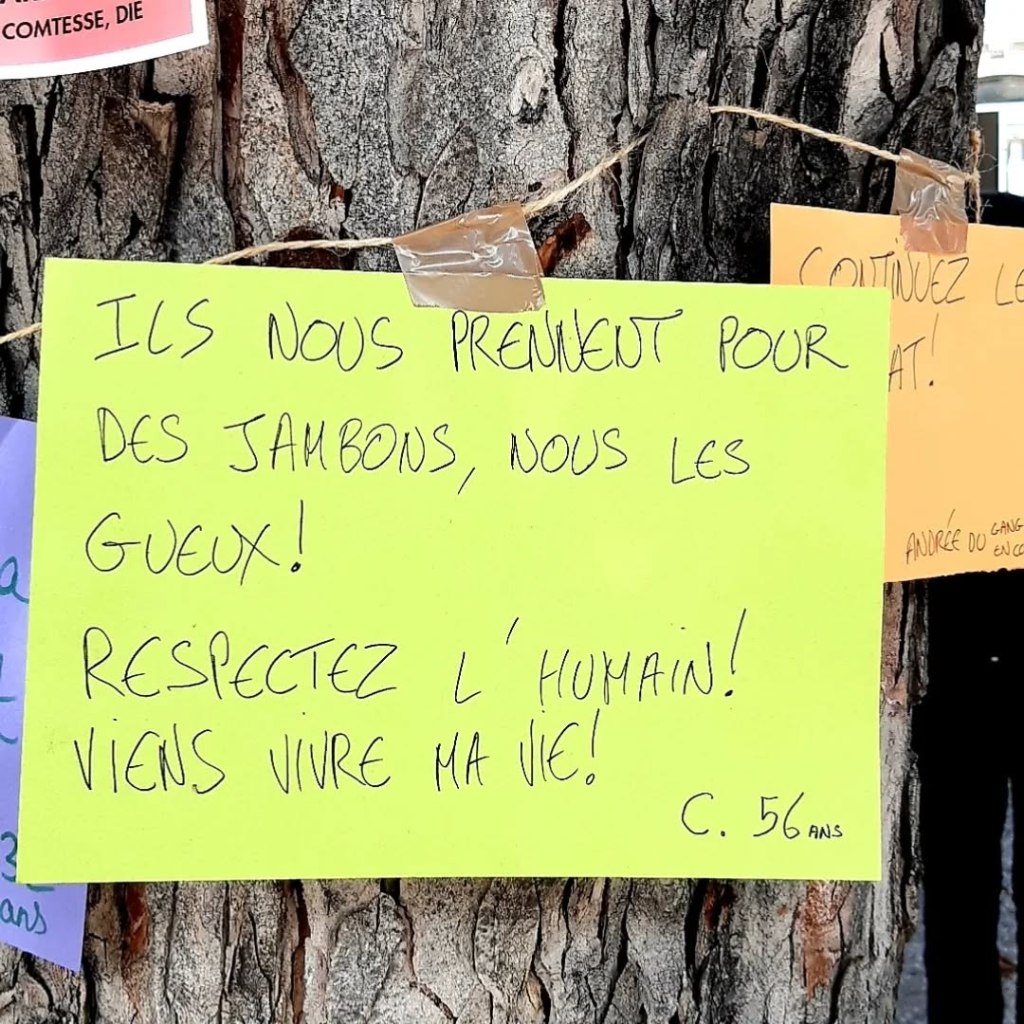 COMTESSE, DIE
ILS NOUS PRENNENT POUR
DES JAMBONS, NOUS LES
GUEUX!
RESPECTEZ L'HUMAIN!
VIENS VIVRE MA VIE!
C. 56 ANS
CONTINUEZ LE
AT!
ANDRÉE DU GANG
EN CO
a
3
ans